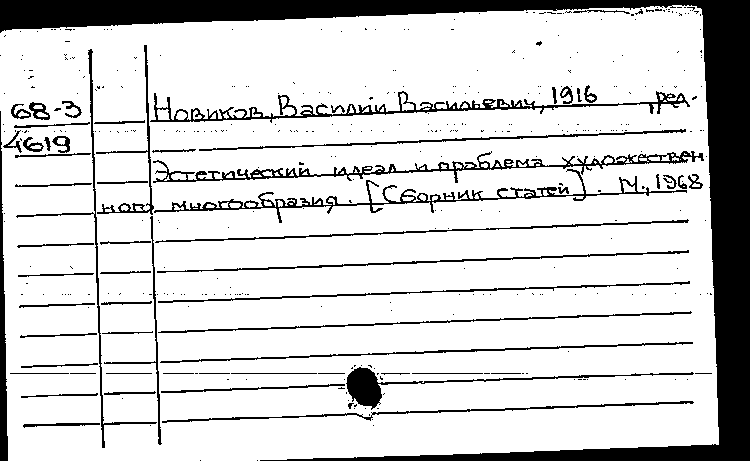 68-3
4619
Новиков, Василий Васильевич, 1916 , ред.
Эстетический идеал и проблема художествен
ного многообразия. [Сборник статей]. М., 1968